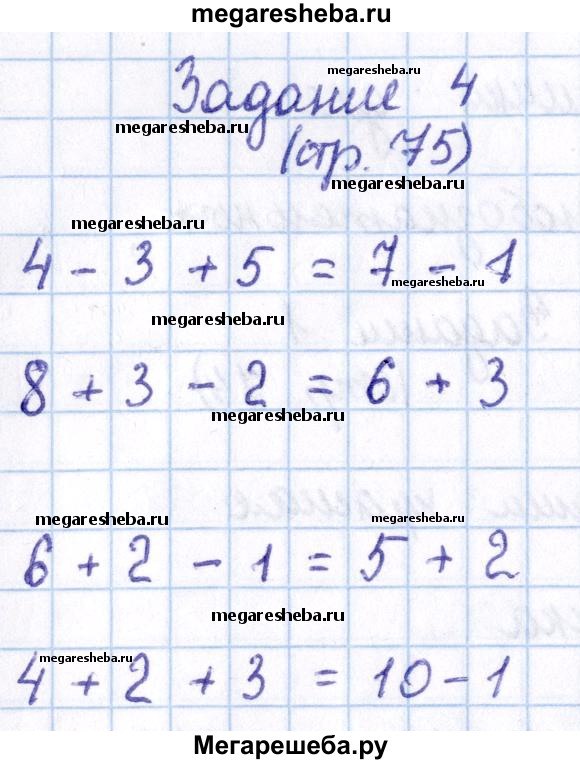 megaresheba.ru
megaresheba.ru
Задание 4
megaresheba.ru
(стр. 75)
megaresheba.ru
megaresheba.ru
4 - 3 + 5 = 7 - 1
megaresheba.ru
megaresheba.ru
8 + 3 - 2 = 6 + 3
megaresheba.ru
megaresheba.ru megaresheba.ru
6 + 2 - 1 = 5 + 2
megaresheba.ru
megaresheba.ru
4 + 2 + 3 = 10 - 1
Мегарешеба.ру